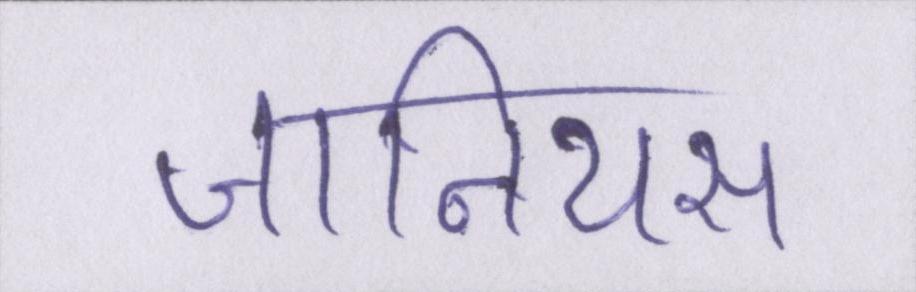 जानियस